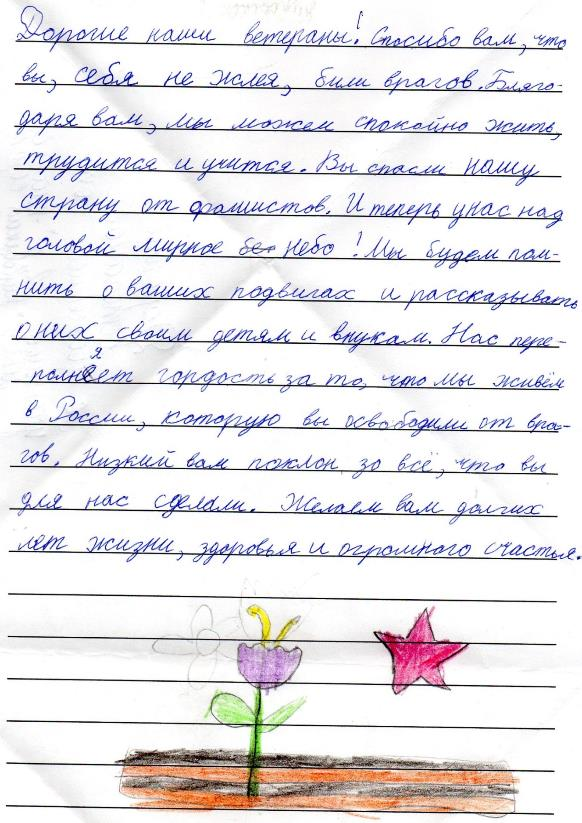 Дорогие наши ветераны! Спасибо вам, что
вы, себя не жлея, били врагов. Благо-
даря вам, мы можем спокойно жить,
трудится и учится. Вы спасли нашу
страну от фашистов. И теперь у нас над
головой мирное бе̶ небо! Мы будем пом-
нить о ваших подвигах и рассказывать
о них своим детям и внукам. Нас пере-
полняет гордость за то, что мы живём
в России, которую вы освободили от вра-
гов. Низкий вам поклон за всё, что вы
для нас сделали. Желаем вам долгих
лет жизни, здоровья и огромного счастья.